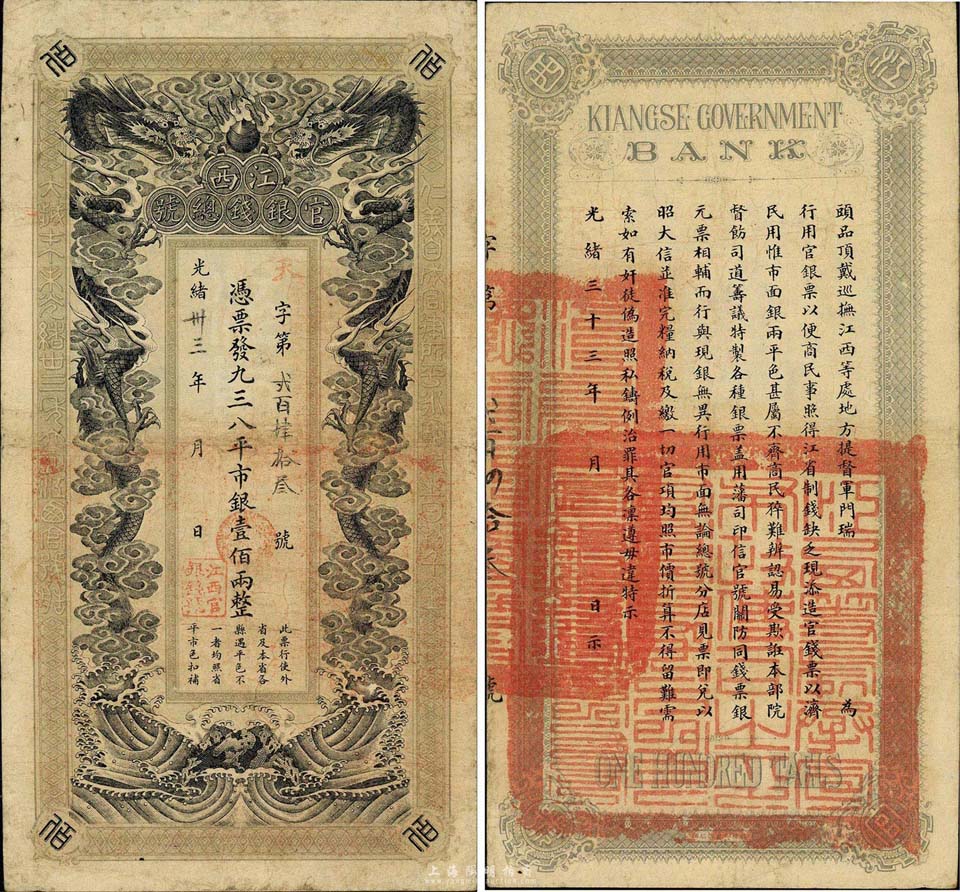 江西
官銀錢總號
天字第貳百肆拾叁號
憑票發九三八平市銀壹佰兩整
光緒卅三年 月 日
江西官
銀錢號
此票行使外
省及本省各
縣遇平色不
一者均照省
平市色扣補
江西
KIANGSE GOVERNMENT
BANK
頭品頂戴巡撫江西等處地方提督軍門瑞 為
行用官銀票以便商民事照得江省制錢缺乏現添造官錢票以濟
民用惟市面銀兩平色甚屬不齊商民猝難辨認易受欺誑本部院
督飭司道籌議特製各種銀票蓋用藩司印信官號關防同錢票銀
元票相輔而行與現銀無異行用市面無論總號分店見票即兌以
昭大信並准完糧納稅及繳一切官項均照市價折算不得留難需
索如有奸徒偽造照私鑄例治罪其各凜遵毋違特示
光緒三十三年 月 日示
ONE HUNDRED TAELS
字第 號